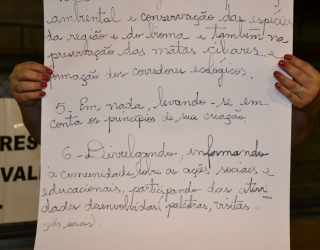 ambiental e conservação das espécies
da região e do bioma e também na
preservação das matas ciliares e
formação dos corredores ecológicos.
5 - Em nada, levando-se em
conta os princípios de sua criação.
6 - Divulgando, informando
à comunidade sobre as ações sociais e
educacionais, participando das ativi-
dades desenvolvidas (palestras, visitas
RES
VAL